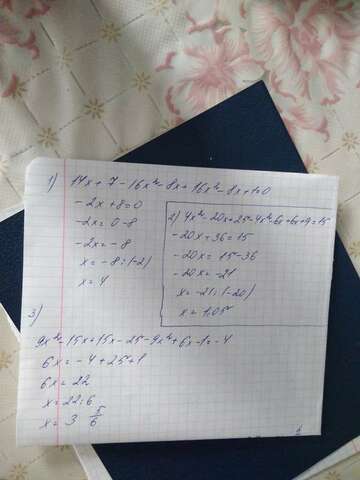 1) 14x + 7 - 16x² - 8x + 16x² - 8x + 1 = 0
-2x + 8 = 0
-2x = 0 - 8
-2x = -8
x = -8 : (-2)
x = 4
2) 4x² - 20x + 25 - 4x² - 6x + 6x + 9 = 15
-20x + 36 = 15
-20x = 15 - 36
-20x = -21
x = -21 : (-20)
x = 1,05
3)
9x² - 15x + 15x - 25 - 9x² + 6x - 1 = -4
6x = -4 + 25 + 1
6x = 22
x = 22 : 6
x = 3 5/6